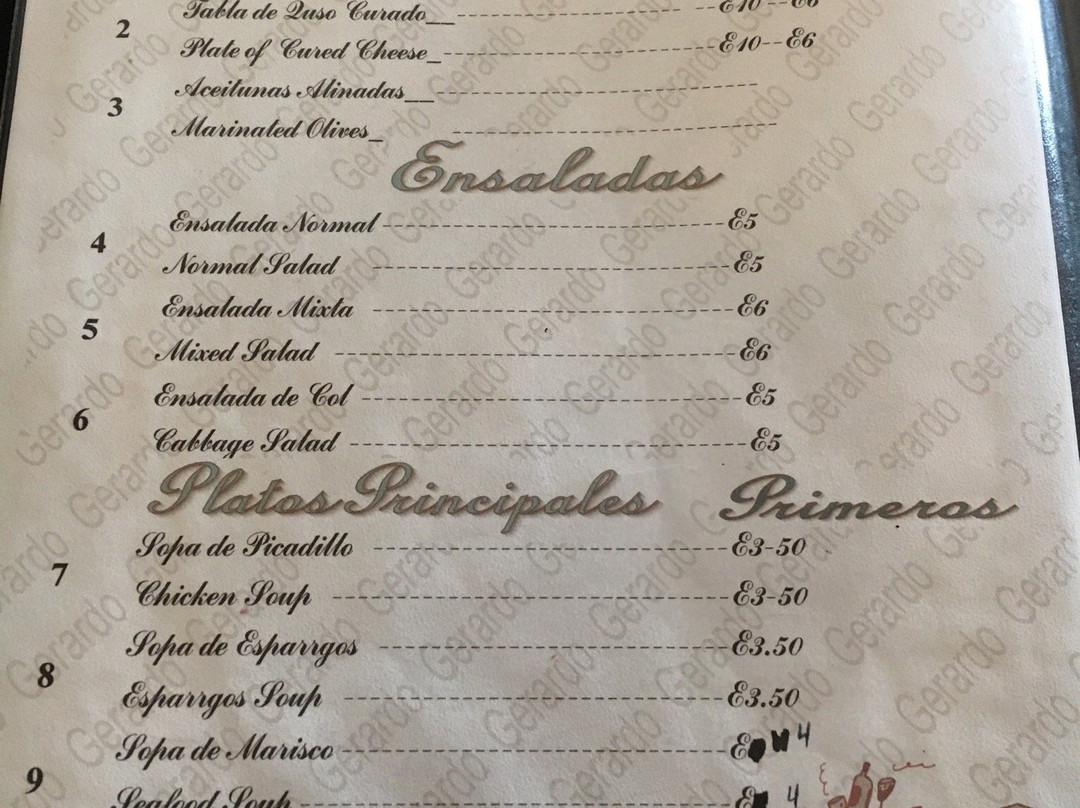 Tabla de Quso Curado__---------------------------- --E10--E6
2
Plate of Cured Cheese_----------------------------E10--E6
Aceitunas Alinadas__----------------------------
3
Marinated Olives_ ----------------------------
Ensaladas
Ensalada Normal----------------------------E5
4
Normal Salad ----------------------------E5
Ensalada Mixta ----------------------------E6
5
Mixed Salad ----------------------------E6
Ensalada de Col ----------------------------E5
6
Cabbage Salad ----------------------------E5
Platos Principales Primeros
Sopa de Picadillo ----------------------------E3-50
7
Chicken Soup ----------------------------E3-50
Sopa de Esparrgos ----------------------------E3.50
8
Esparrgos Soup ----------------------------E3.50
Sopa de Marisco----------------------------E 4
9
Seafood Soup----------------------------E 4